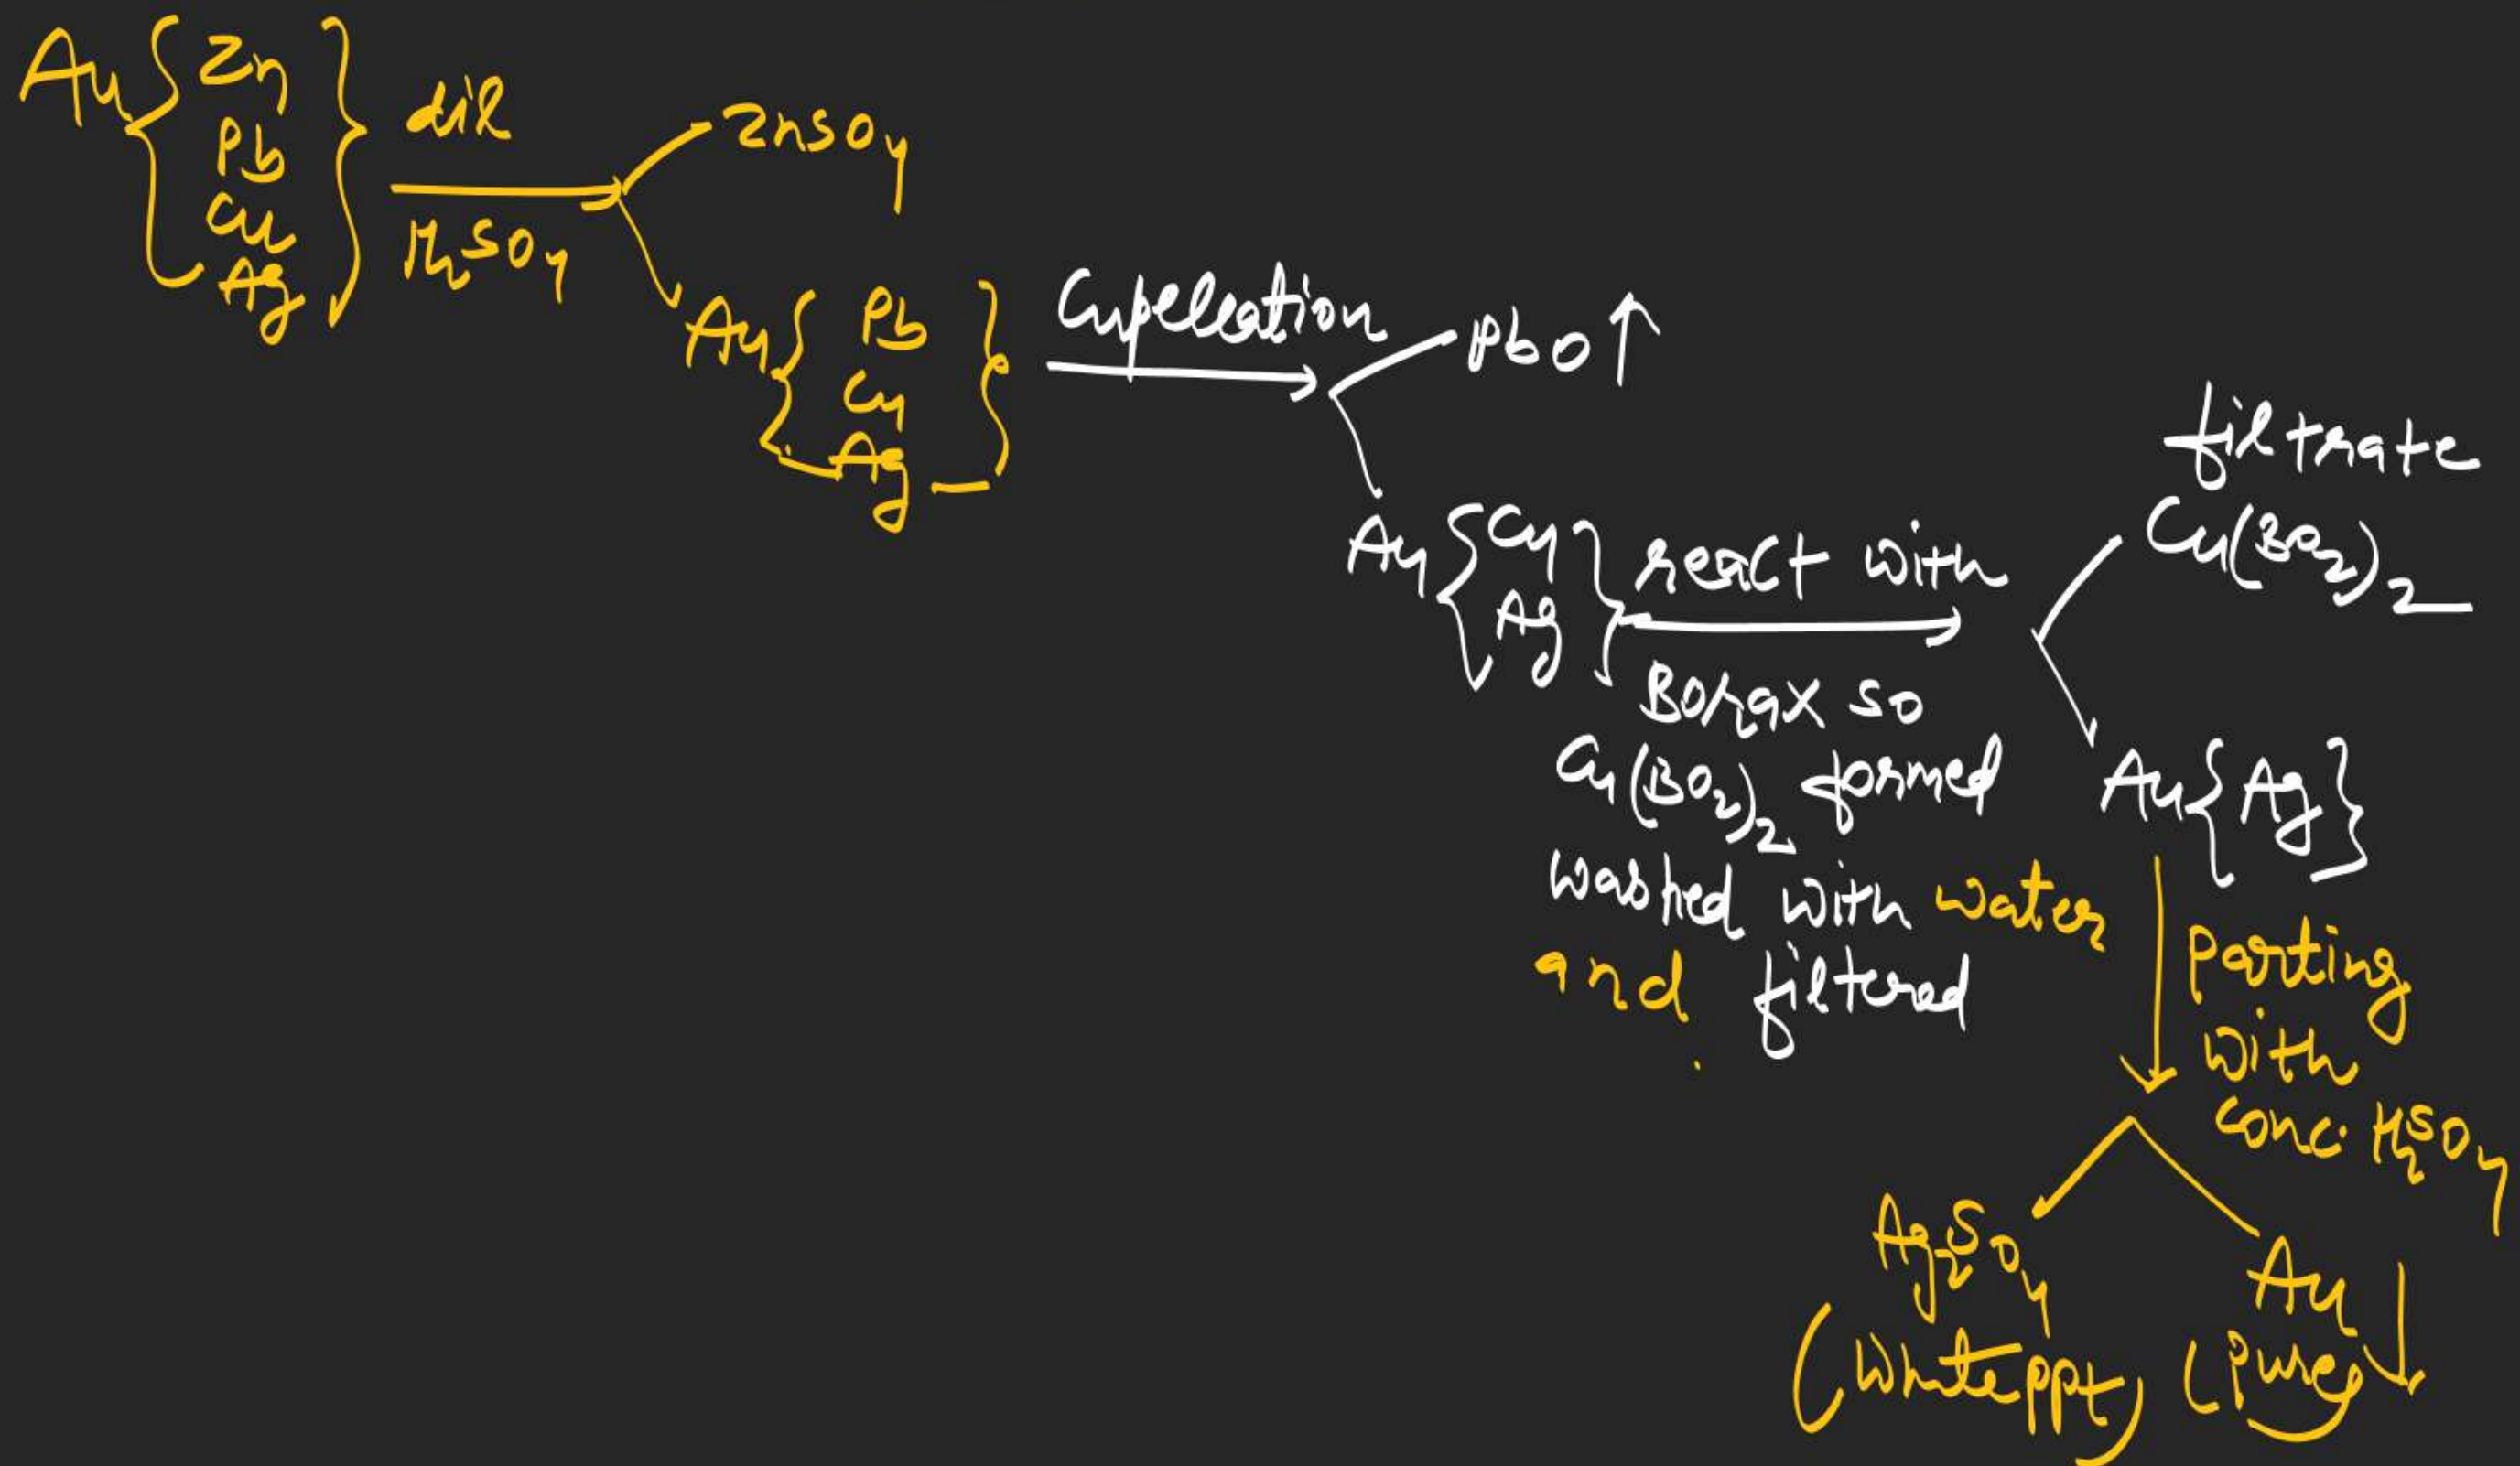 Au { Zn
Pb
Cu
Ag }
dil
H2SO4
ZnSO4
Au { Pb
Cu
Ag }
Cupellation
PbO ↑
Au { Cu
Ag }
react with
Borax so
Cu(BO2)2 formed
washed with water
and filtered
filtrate
Cu(BO2)2
Au { Ag }
Parting
with
conc. H2SO4
Ag2SO4
(White ppt)
Au ↓
(Pure)